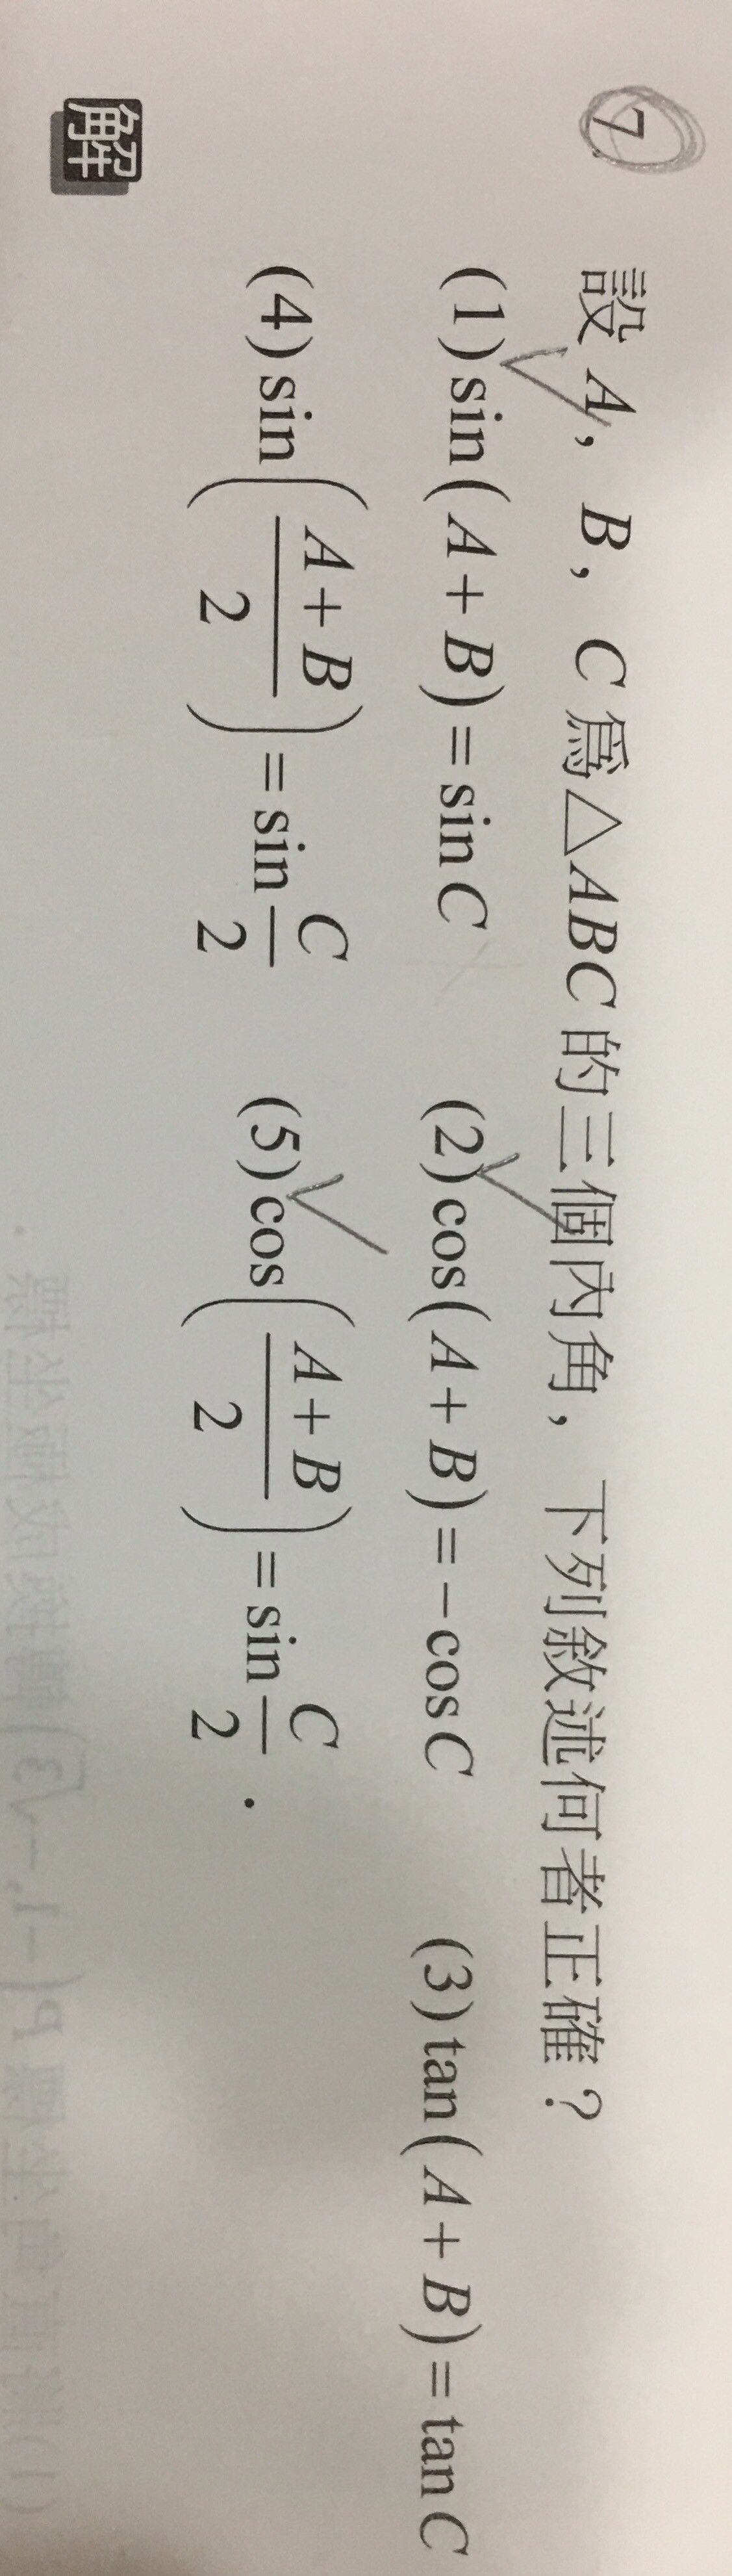 7. 設 A, B, C 為△ABC 的三個內角, 下列敘述何者正確?
(1) sin(A+B)=sinC (2) cos(A+B)=-cosC (3) tan(A+B)=tanC
(4) sin((A+B)/2)=sin C/2 (5) cos((A+B)/2)=sin C/2 .
解